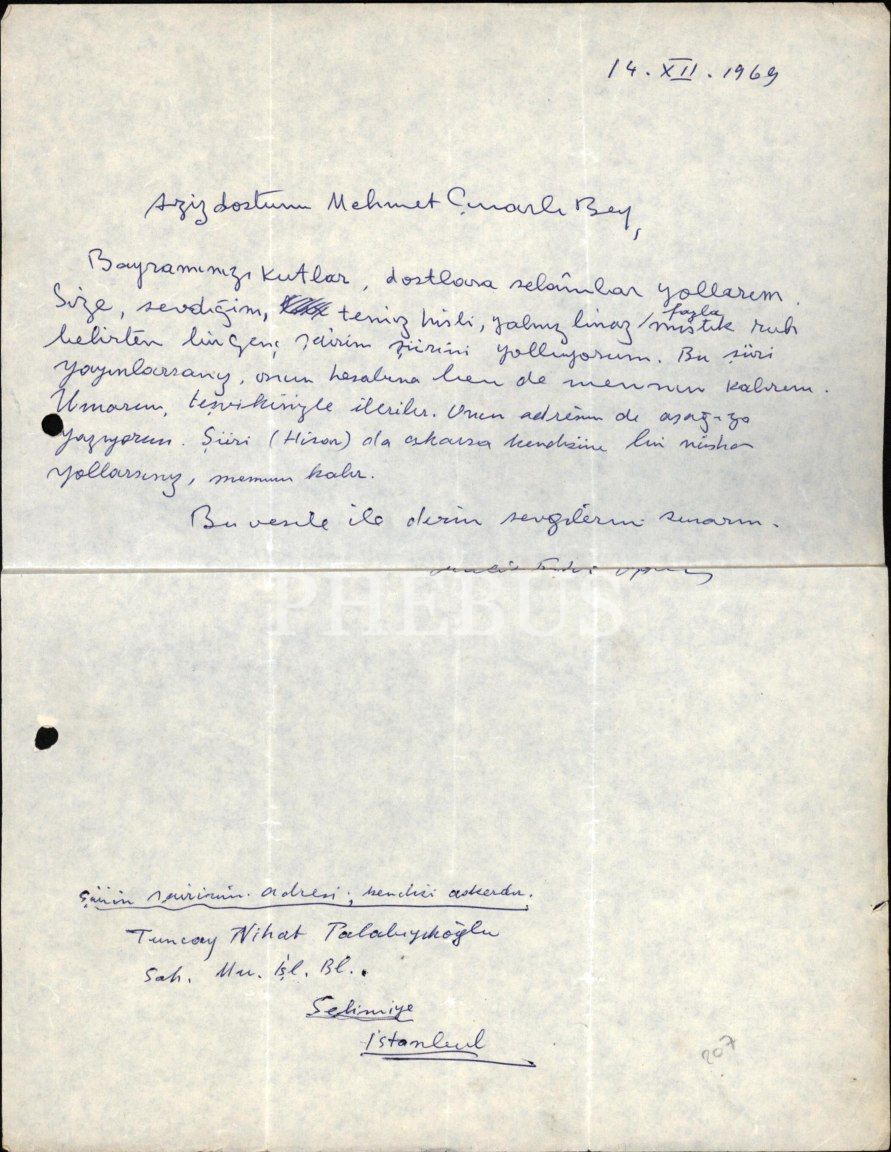 14.XII.1969
Aziz dostum Mehmet Çınarlı Bey,
Bayramınızı kutlar, dostlara selâmlar yollarım.
Size, sevdiğim, temiz hisli, yalnız biraz fazla mistik ruh
belirten bir genç şairin şiirini yolluyorum. Bu şiiri
yayınlarsanız, onun hesabına ben de memnun kalırım.
Umarım, teşvikinizle ilerler. Onun adresini de aşağıya
yazıyorum. Şiiri (Hisar) da çıkarsa kendisine bir nüsha
yollarsanız, memnun kalır.
Bu vesile ile derin sevgilerimi sunarım.
PHEBUS
Şiirin şairinin adresi; kendisi askerdir.
Tuncay Nihat Palabıyıkoğlu
Sah. Mu. İşl. Bl.
Selimiye
İstanbul
207